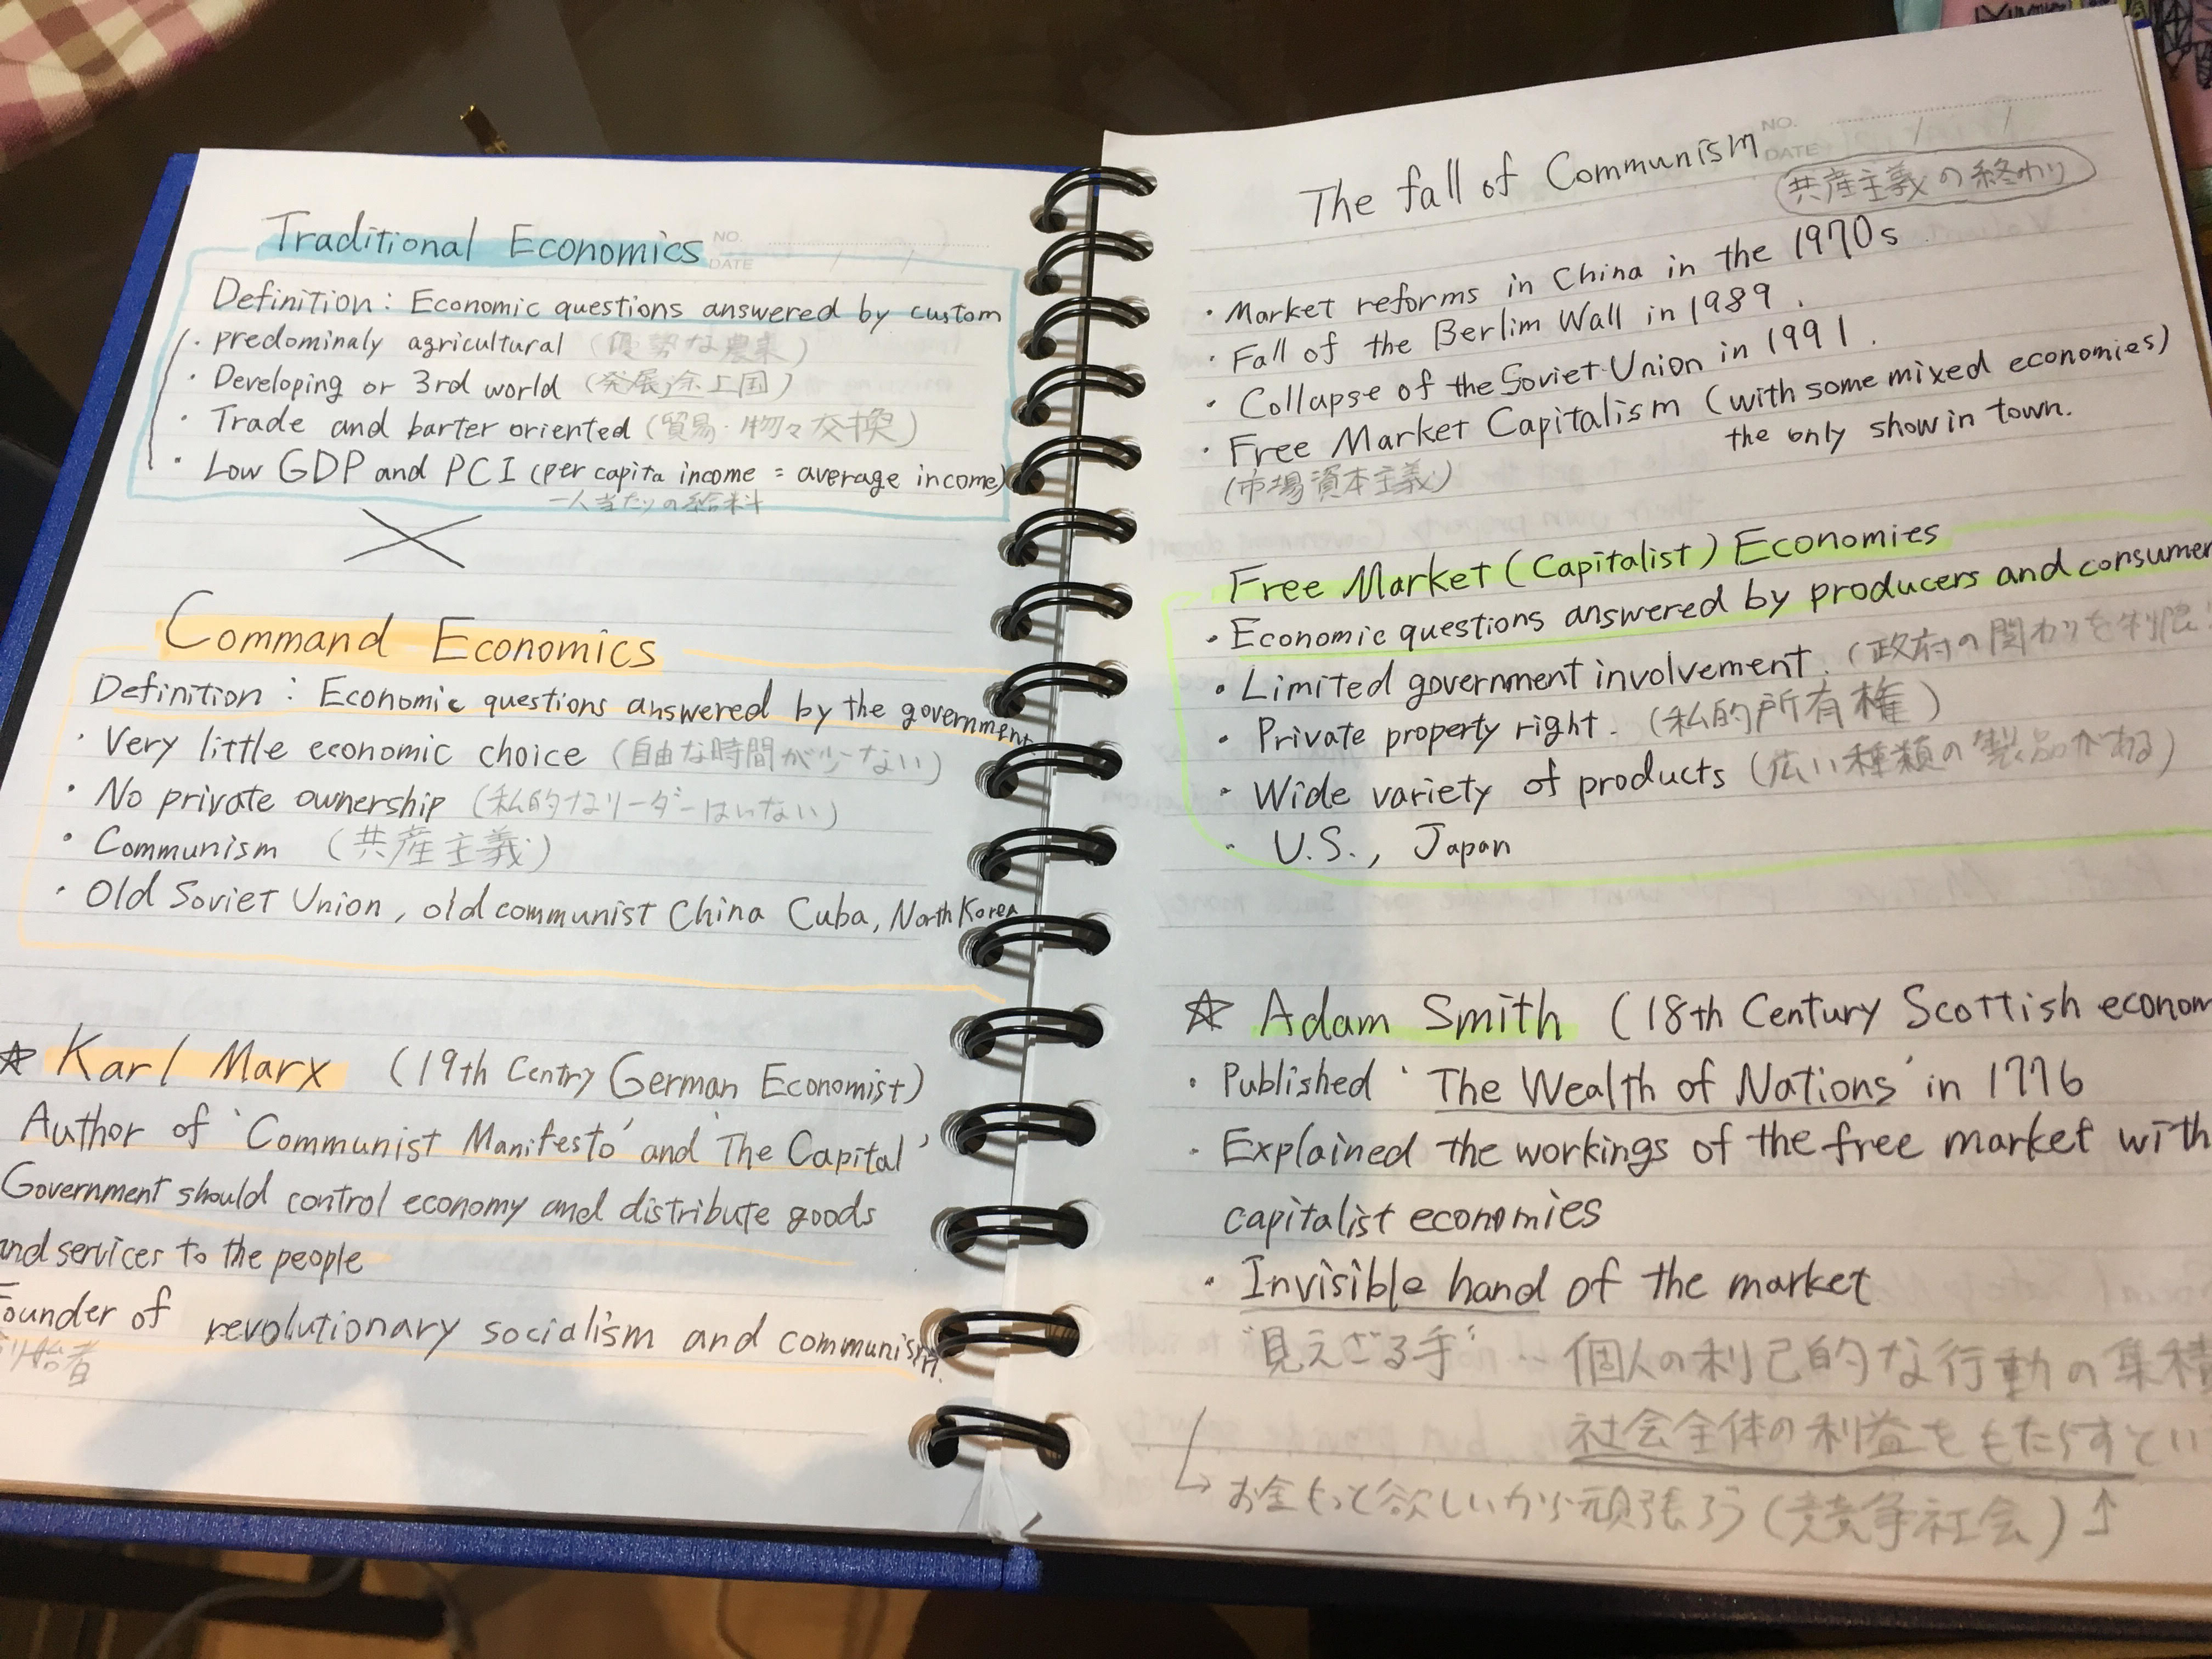 Traditional Economics
NO.
DATE
Definition: Economic questions answered by custom
· predominaly agricultural (優勢な農業)
· Developing or 3rd world (発展途上国)
· Trade and barter oriented (貿易·物々交換)
· Low GDP and PCI (per capita income = average income)
一人当たりの給料
Command Economics
Definition: Economic questions answered by the government
· Very little economic choice (自由な時間が少ない)
· No private ownership (私的なリーダーはいない)
· Communism (共産主義)
· Old Soviet Union, old communist China Cuba, North Korea
☆ Karl Marx (19th Centry German Economist)
Author of 'Communist Manifesto' and 'The Capital'
Government should control economy and distribute goods
and services to the people
Founder of revolutionary socialism and communism.
始者
The fall of Communism
NO.
DATE
共産主義の終わり
· Market reforms in China in the 1970s
· Fall of the Berlim Wall in 1989.
· Collapse of the Soviet Union in 1991.
· Free Market Capitalism (with some mixed economies)
the only show in town.
(市場資本主義)
Free Market (Capitalist) Economies
· Economic questions answered by producers and consumer
· Limited government involvement. (政府の関わりを制限
· Private property right. (私的所有権)
· Wide variety of products (広い種類の製品がある)
· U.S., Japan
☆ Adam Smith (18th Century Scottish econom
· Published 'The Wealth of Nations' in 1776
· Explained the workings of the free market with
capitalist economies
· Invisible hand of the market
"見えざる手" … 個人の利己的な行動の集積
社会全体の利益をもたらすとい
↳ お金もっと欲しいから頑張ろう (競争社会) ↑